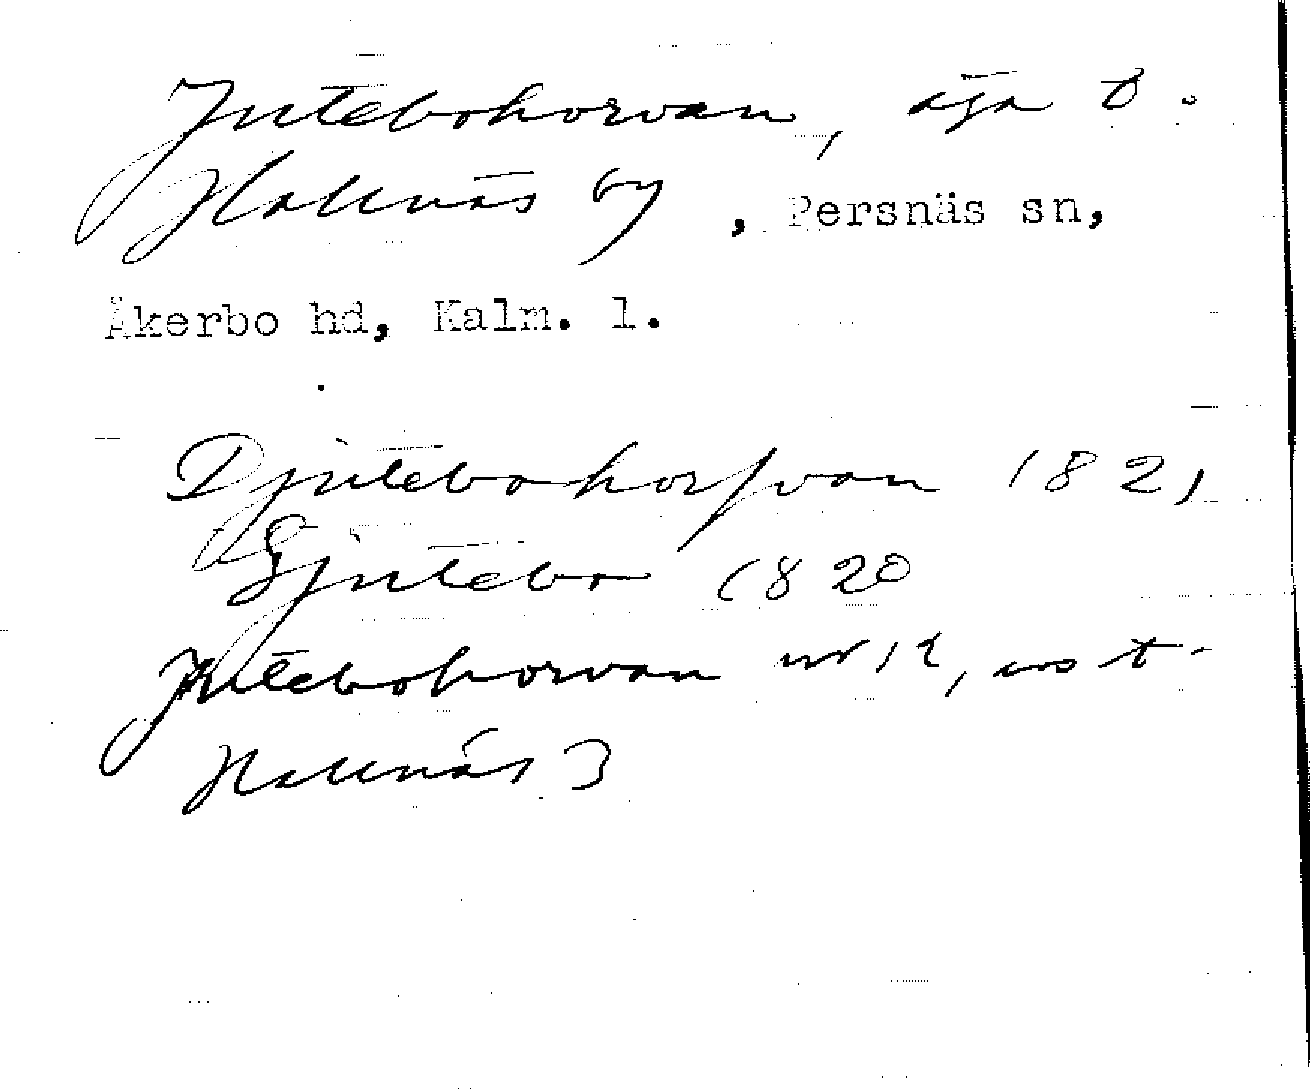 Jutebohorvan, äga t.
Hallnäs by, Persnäs sn,
Åkerbo hd, Kalm. l.
Djutebohorfvan 1821
Gjutebo 1820
Jutebohorvan nr 12, urs t.
Hallnäs 3